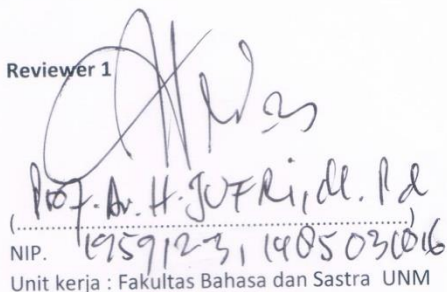 Reviewer 1
Prof. Dr. H. JUFRI, M. Pd
(..............................................)
NIP. 19591231 198503 1016
Unit kerja : Fakultas Bahasa dan Sastra UNM